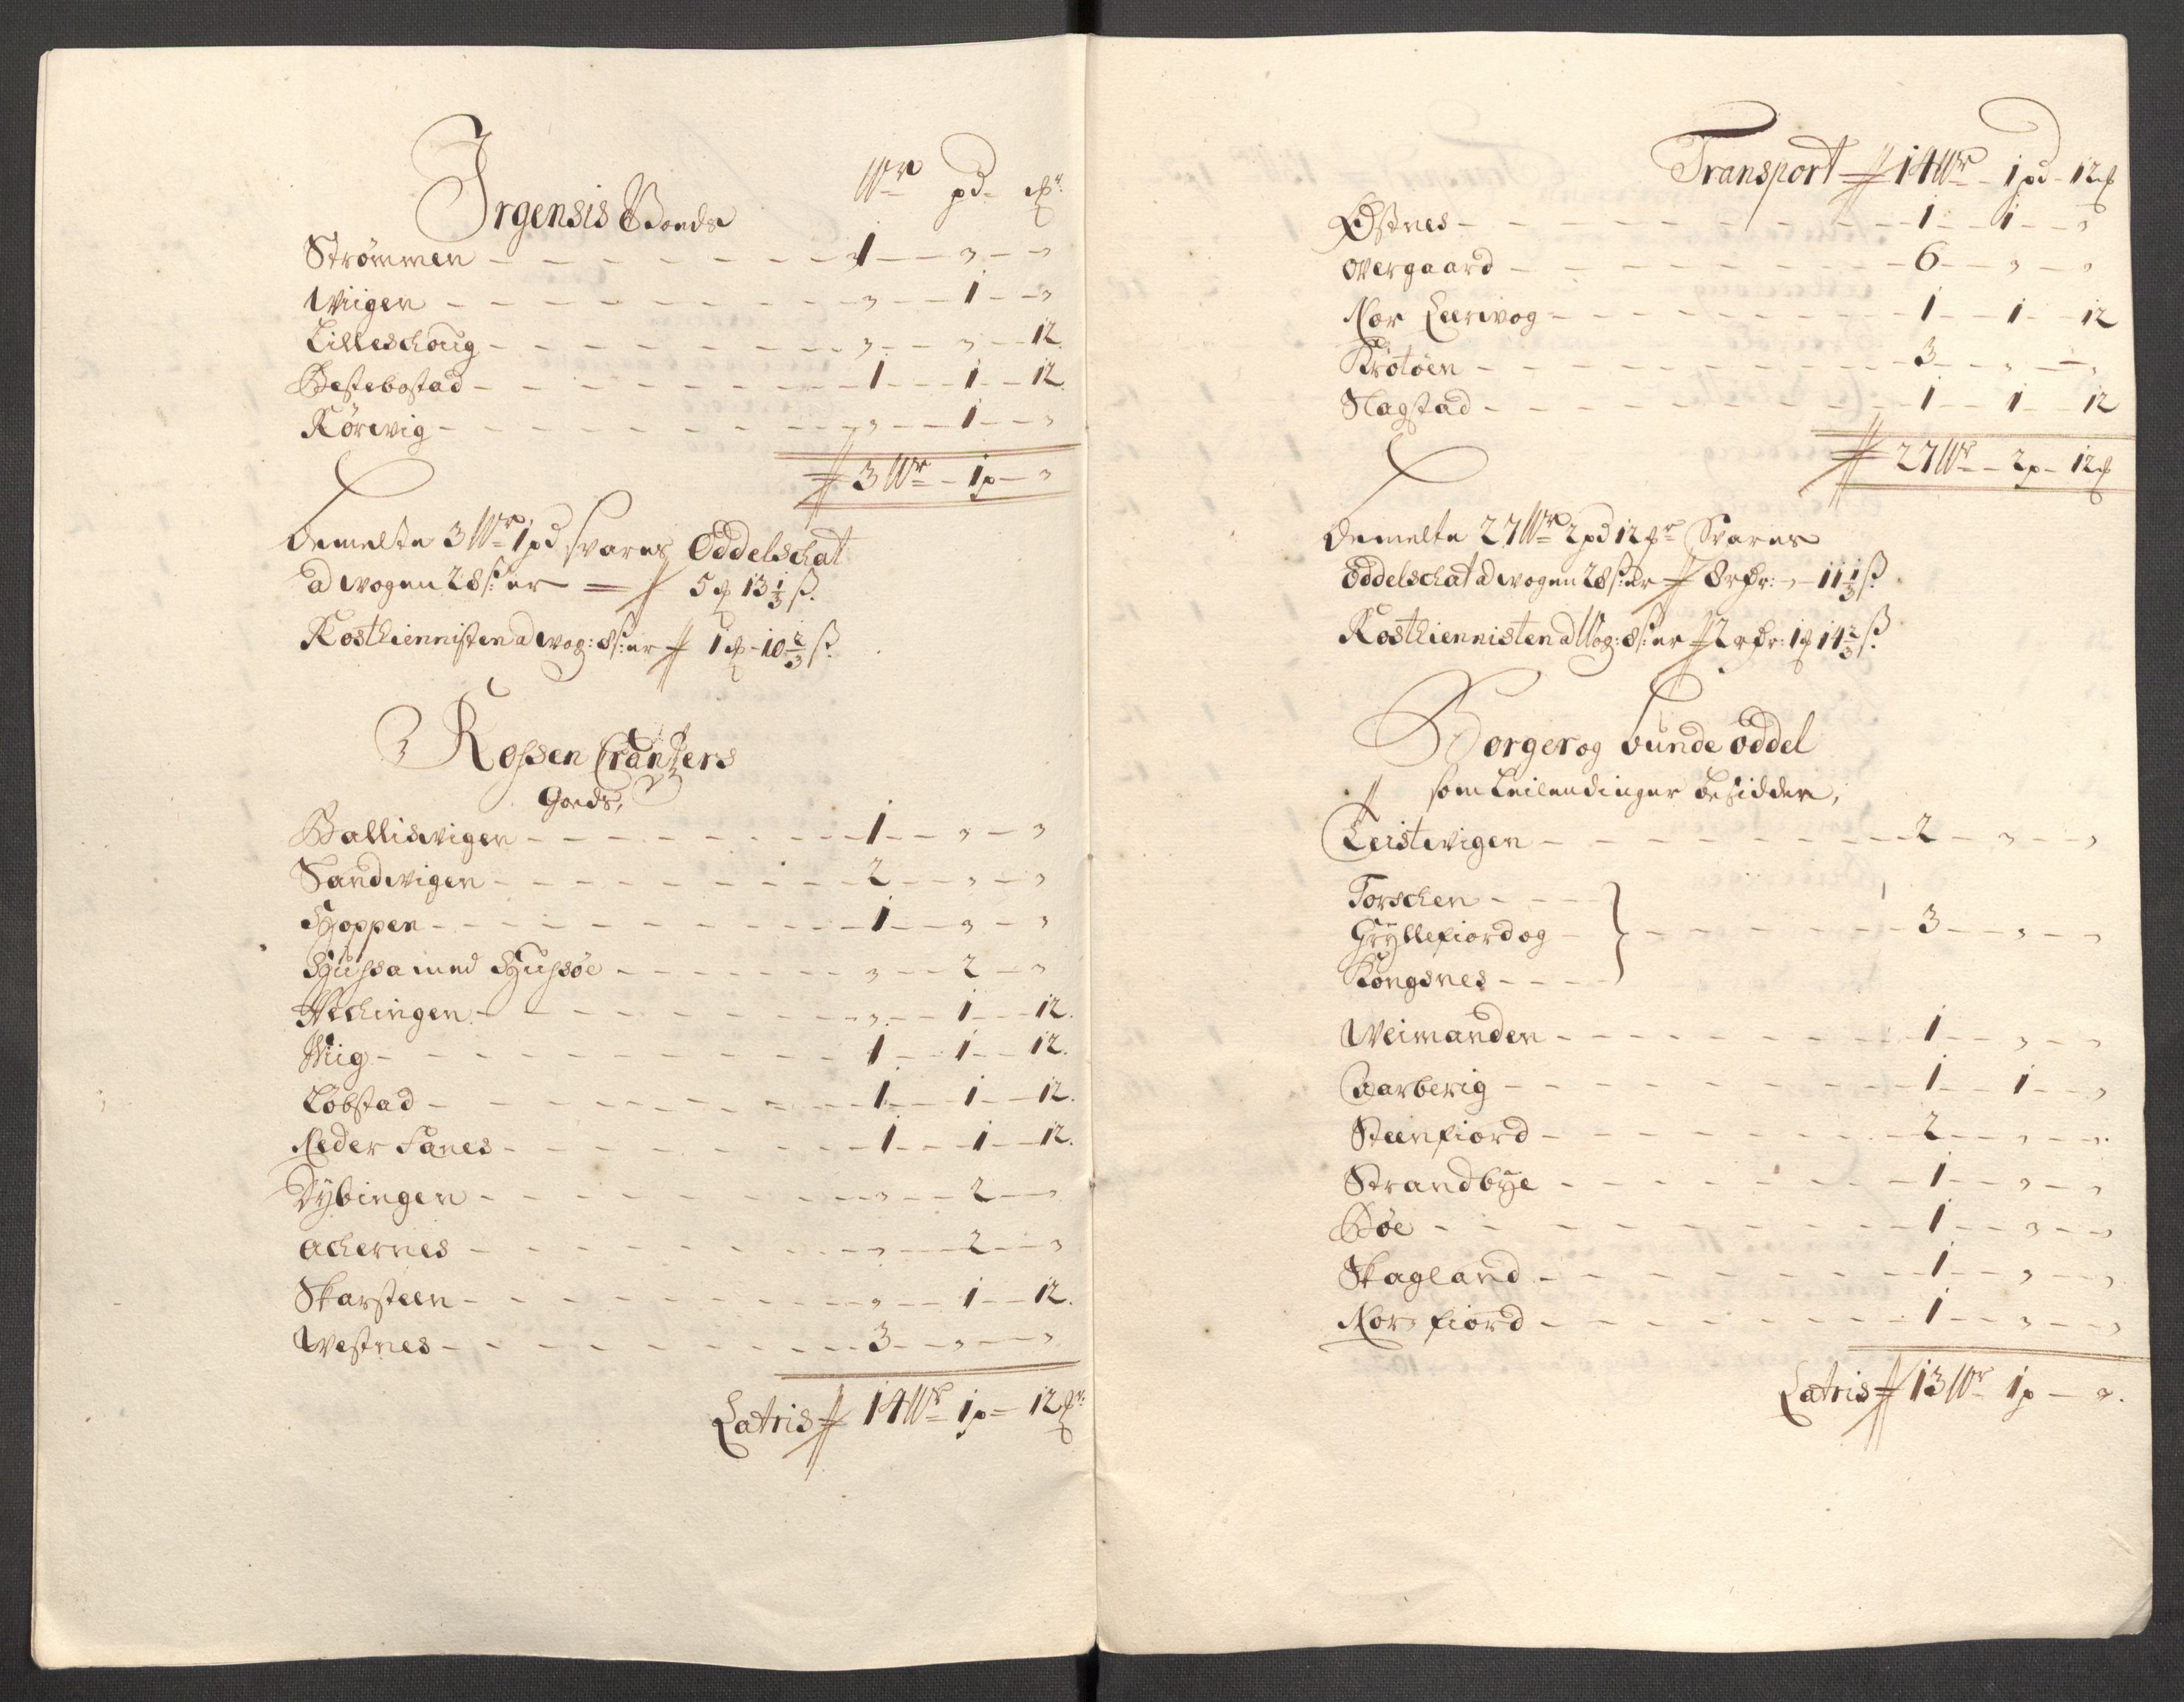 Irgensis Goeds Wr pd mr
Strømmen - 1 - " - "
Wiigen - " - 1 - "
Lilleschoug - " - " - 12.
Hestebostad - 1 - 1 - 12
Rørwig - " - 1 - "
3 Wr - 1 p - "
bemelte 3 Wr 1 pd svares Oddelschat
ad wogen 28 s: er = 5 mk 13 1/3 s.
Rostiennisten ad wog: 8 s: er 1 mk - 10 2/3 s.
Rossen Crantzers
Goeds,
Balliswigen - 1 - " - "
Sandwigen - 2 - " - "
Hoppen - 1 - " - "
Giussa med Giussøe - " - 2 - "
Hechingen - " - 1 - 12.
Wiig - 1 - 1 - 12.
Løbstad - 1 - 1 - 12.
Neder Fanes - 1 - 1 - 12.
Dybingen - " - 2 - "
Achernes - " - 2 - "
Skarsteen - " - 1 - 12.
Westnes - 3 - " - "
Latris 14 Wr 1 p - 12 mr
Transport 14 Wr - 1 pd - 12 mk
Østnes - 1 - 1 - "
Overgaard - 6 - " - "
Nor Leerwog - 1 - 1 - 12
Krøtøen - 3 - " - "
Slagstad - 1 - 1 - 12
27 Wr - 2 p - 12 mk
bemelte 27 Wr 2 pd 12 mr Svares
Oddelschat ad wogen 28 s: er 8 rdr: - " - 11 1/3 s.
Rostiennisten ad Wog: 8 s: er 2 rdr: 1 mk 14 2/3 s.
Borger og bunde oddel
som Leilendinger besidder,
Teistevigen - 2 - " - "
Torschen -
Gryllefiord og - 3 - " - "
Kongsnes -
Weimanden - 1 - " - "
Aarberig - 1 - 1 - "
Steenfiord - 2 - " - "
Strandbye - 1 - " - "
Bøe - 1 - " - "
Skagland - 1 - " - "
Nor fiord - 1 - " - "
Latris 13 Wr 1 p - "